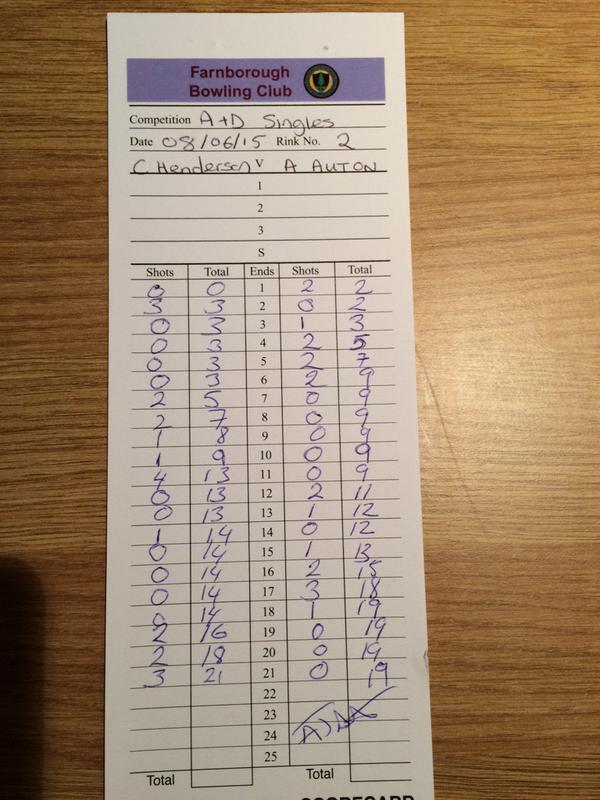 Farnborough
Bowling Club
Competition A+D Singles
Date 08/06/15 Rink No. 2
C. Henderson V A AUTON
1
2
3
S
Shots Total Ends Shots Total
0 0 1 2 2
3 3 2 0 2
0 3 3 1 3
0 3 4 2 5
0 3 5 2 7
0 3 6 2 9
2 5 7 0 9
2 7 8 0 9
1 8 9 0 9
1 9 10 0 9
4 13 11 0 9
0 13 12 2 11
0 13 13 1 12
1 14 14 0 12
0 14 15 1 13
0 14 16 2 15
0 14 17 3 18
0 14 18 1 19
2 16 19 0 19
2 18 20 0 19
3 21 21 0 19
22
23
24
25
Total Total
SCORECARD